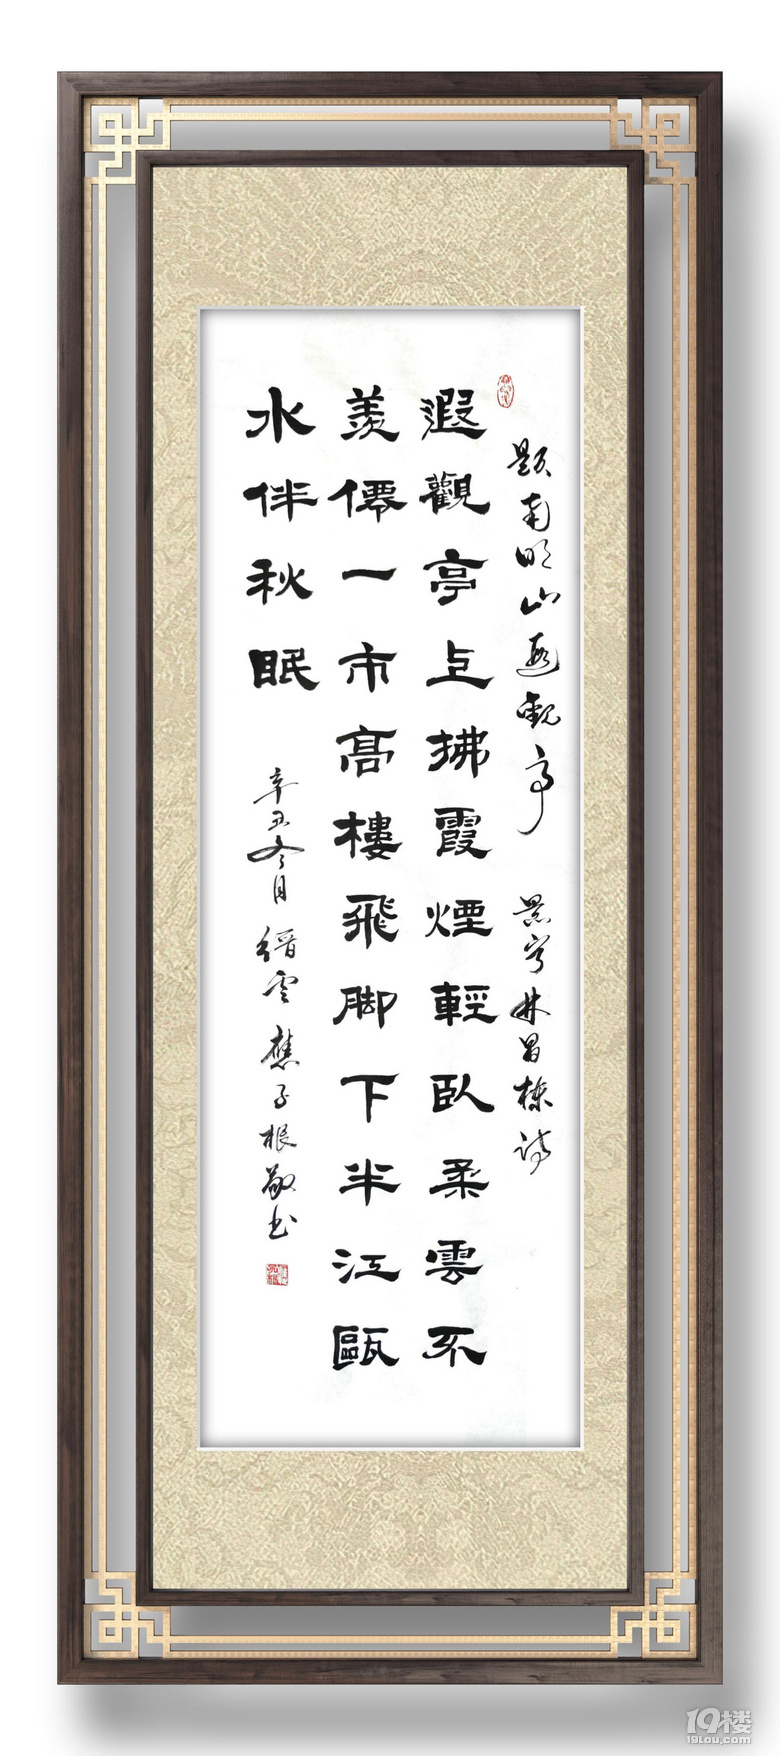 题南明山遐觀亭 景宁林昌栋诗
遐觀亭上拂霞煙輕臥柔雲不
羨僊一市高樓飛脚下半江甌
水伴秋眠
辛丑冬月縉雲應子根敬书
19楼
19lou.com